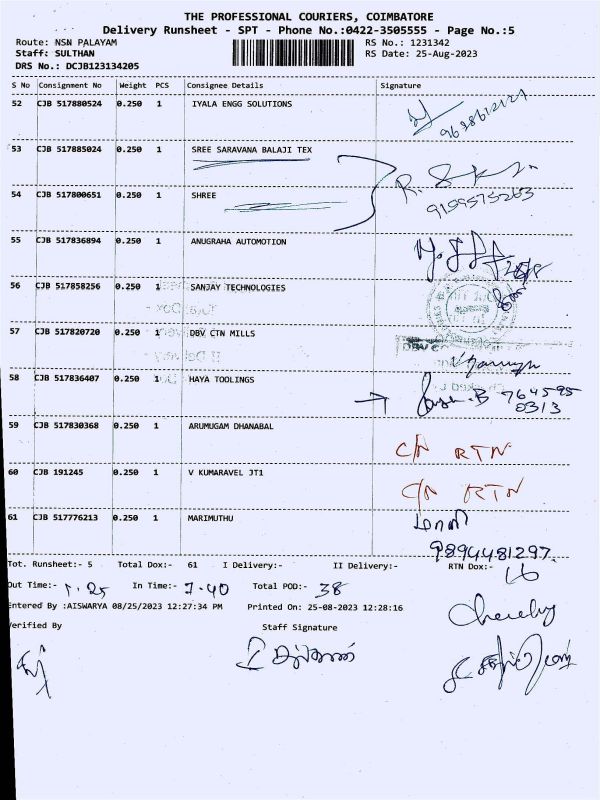 THE PROFESSIONAL COURIERS, COIMBATORE
Delivery Runsheet - SPT - Phone No.:0422-3505555 - Page No.:5
Route: NSN PALAYAM RS No.: 1231342
Staff: SULTHAN RS Date: 25-Aug-2023
DRS No.: DCJB123134205
S No Consignment No Weight PCS Consignee Details Signature
52 CJB 517880524 0.250 1 IYALA ENGG SOLUTIONS
53 CJB 517885024 0.250 1 SREE SARAVANA BALAJI TEX
54 CJB 517800651 0.250 1 SHREE
9159575263
55 CJB 517836894 0.250 1 ANUGRAHA AUTOMOTION
56 CJB 517858256 0.250 1 SANJAY TECHNOLOGIES
57 CJB 517820720 0.250 1 DBV CTN MILLS
58 CJB 517836407 0.250 1 HAYA TOOLINGS
764595
0313
59 CJB 517830368 0.250 1 ARUMUGAM DHANABAL
C/N RTN
60 CJB 191245 0.250 1 V KUMARAVEL JT1
C/N RTN
61 CJB 517776213 0.250 1 MARIMUTHU
9894481297
Tot. Runsheet:- 5 Total Dox:- 61 I Delivery:- II Delivery:- RTN Dox:- 16
Out Time:- 1.25 In Time:- 7.40 Total POD:- 38
Entered By :AISWARYA 08/25/2023 12:27:34 PM Printed On: 25-08-2023 12:28:16
Verified By Staff Signature